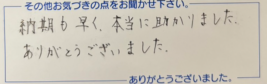 その他お気づきの点をお聞かせ下さい。
納期も早く、本当に助かりました。
ありがとうございました。
ありがとうございました。